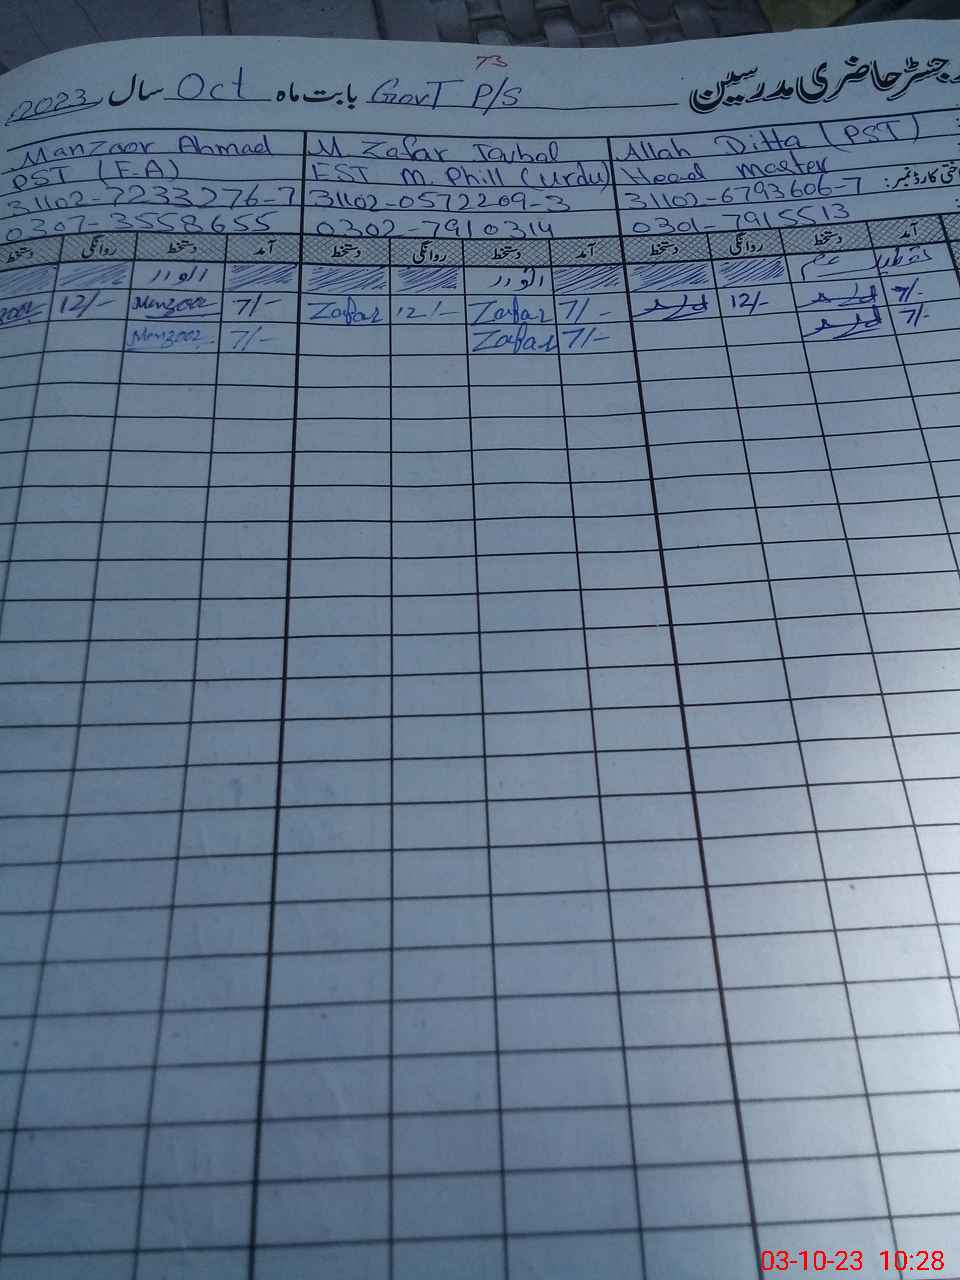 73
رجسٹر حاضری مدرسین GovT P/S بابت ماہ Oct سال 2023ء
Allah Ditta (PST) M Zafar Iqbal Manzoor Ahmad
Head master EST M.Phill (Urdu) PST (F.A)
31102-6793606-7 31102-0572209-3 31102-7233276-7
0301-7915513 0302-7910314 0307-3558655
آمد دستخط روانگی دستخط آمد دستخط روانگی دستخط آمد دستخط روانگی دستخط
اتوار اتوار
7/- 12/- 7/- Zafar 12/- Zafar 7/- Manzoor 12/-
7/- 7/- Zafar 7/- Manzoor
03-10-23 10:28